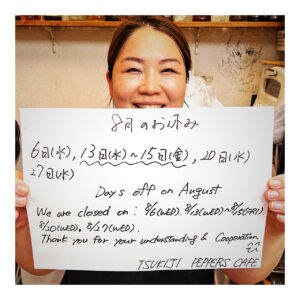 8月のお休み
6日(水), 13日(水)〜15日(金), 20日(水)
27日(水)
Days off on August
We are closed on : 8/6(WED). 8/13(WED)~8/15(FRI)
8/20(WED), 8/27(WED).
Thank you for your understanding & Cooperation
TSUKIJI PEPPERS CAFE